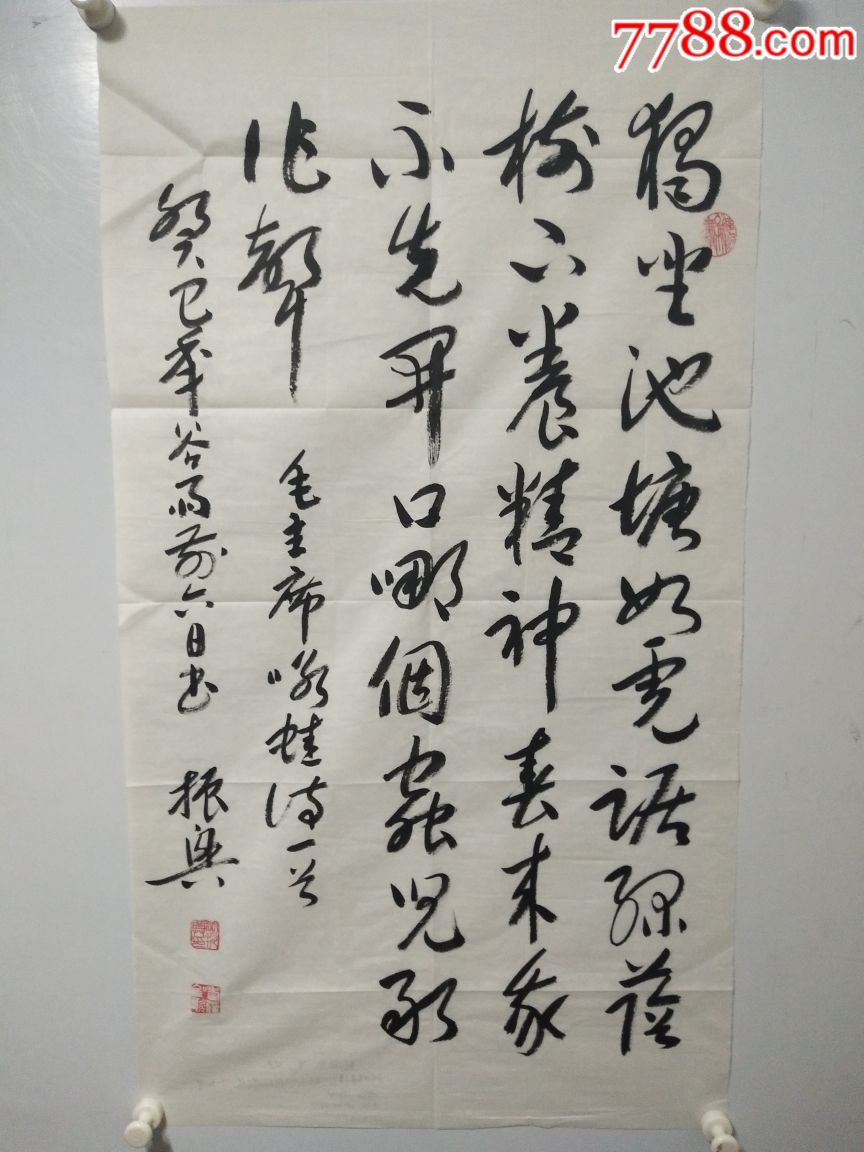 7788.com
獨坐池塘如虎踞綠蔭
樹下養精神春來我
不先開口哪個蟲兒敢
作聲
毛主席咏蛙诗一首
癸巳年谷雨前六日书 振興